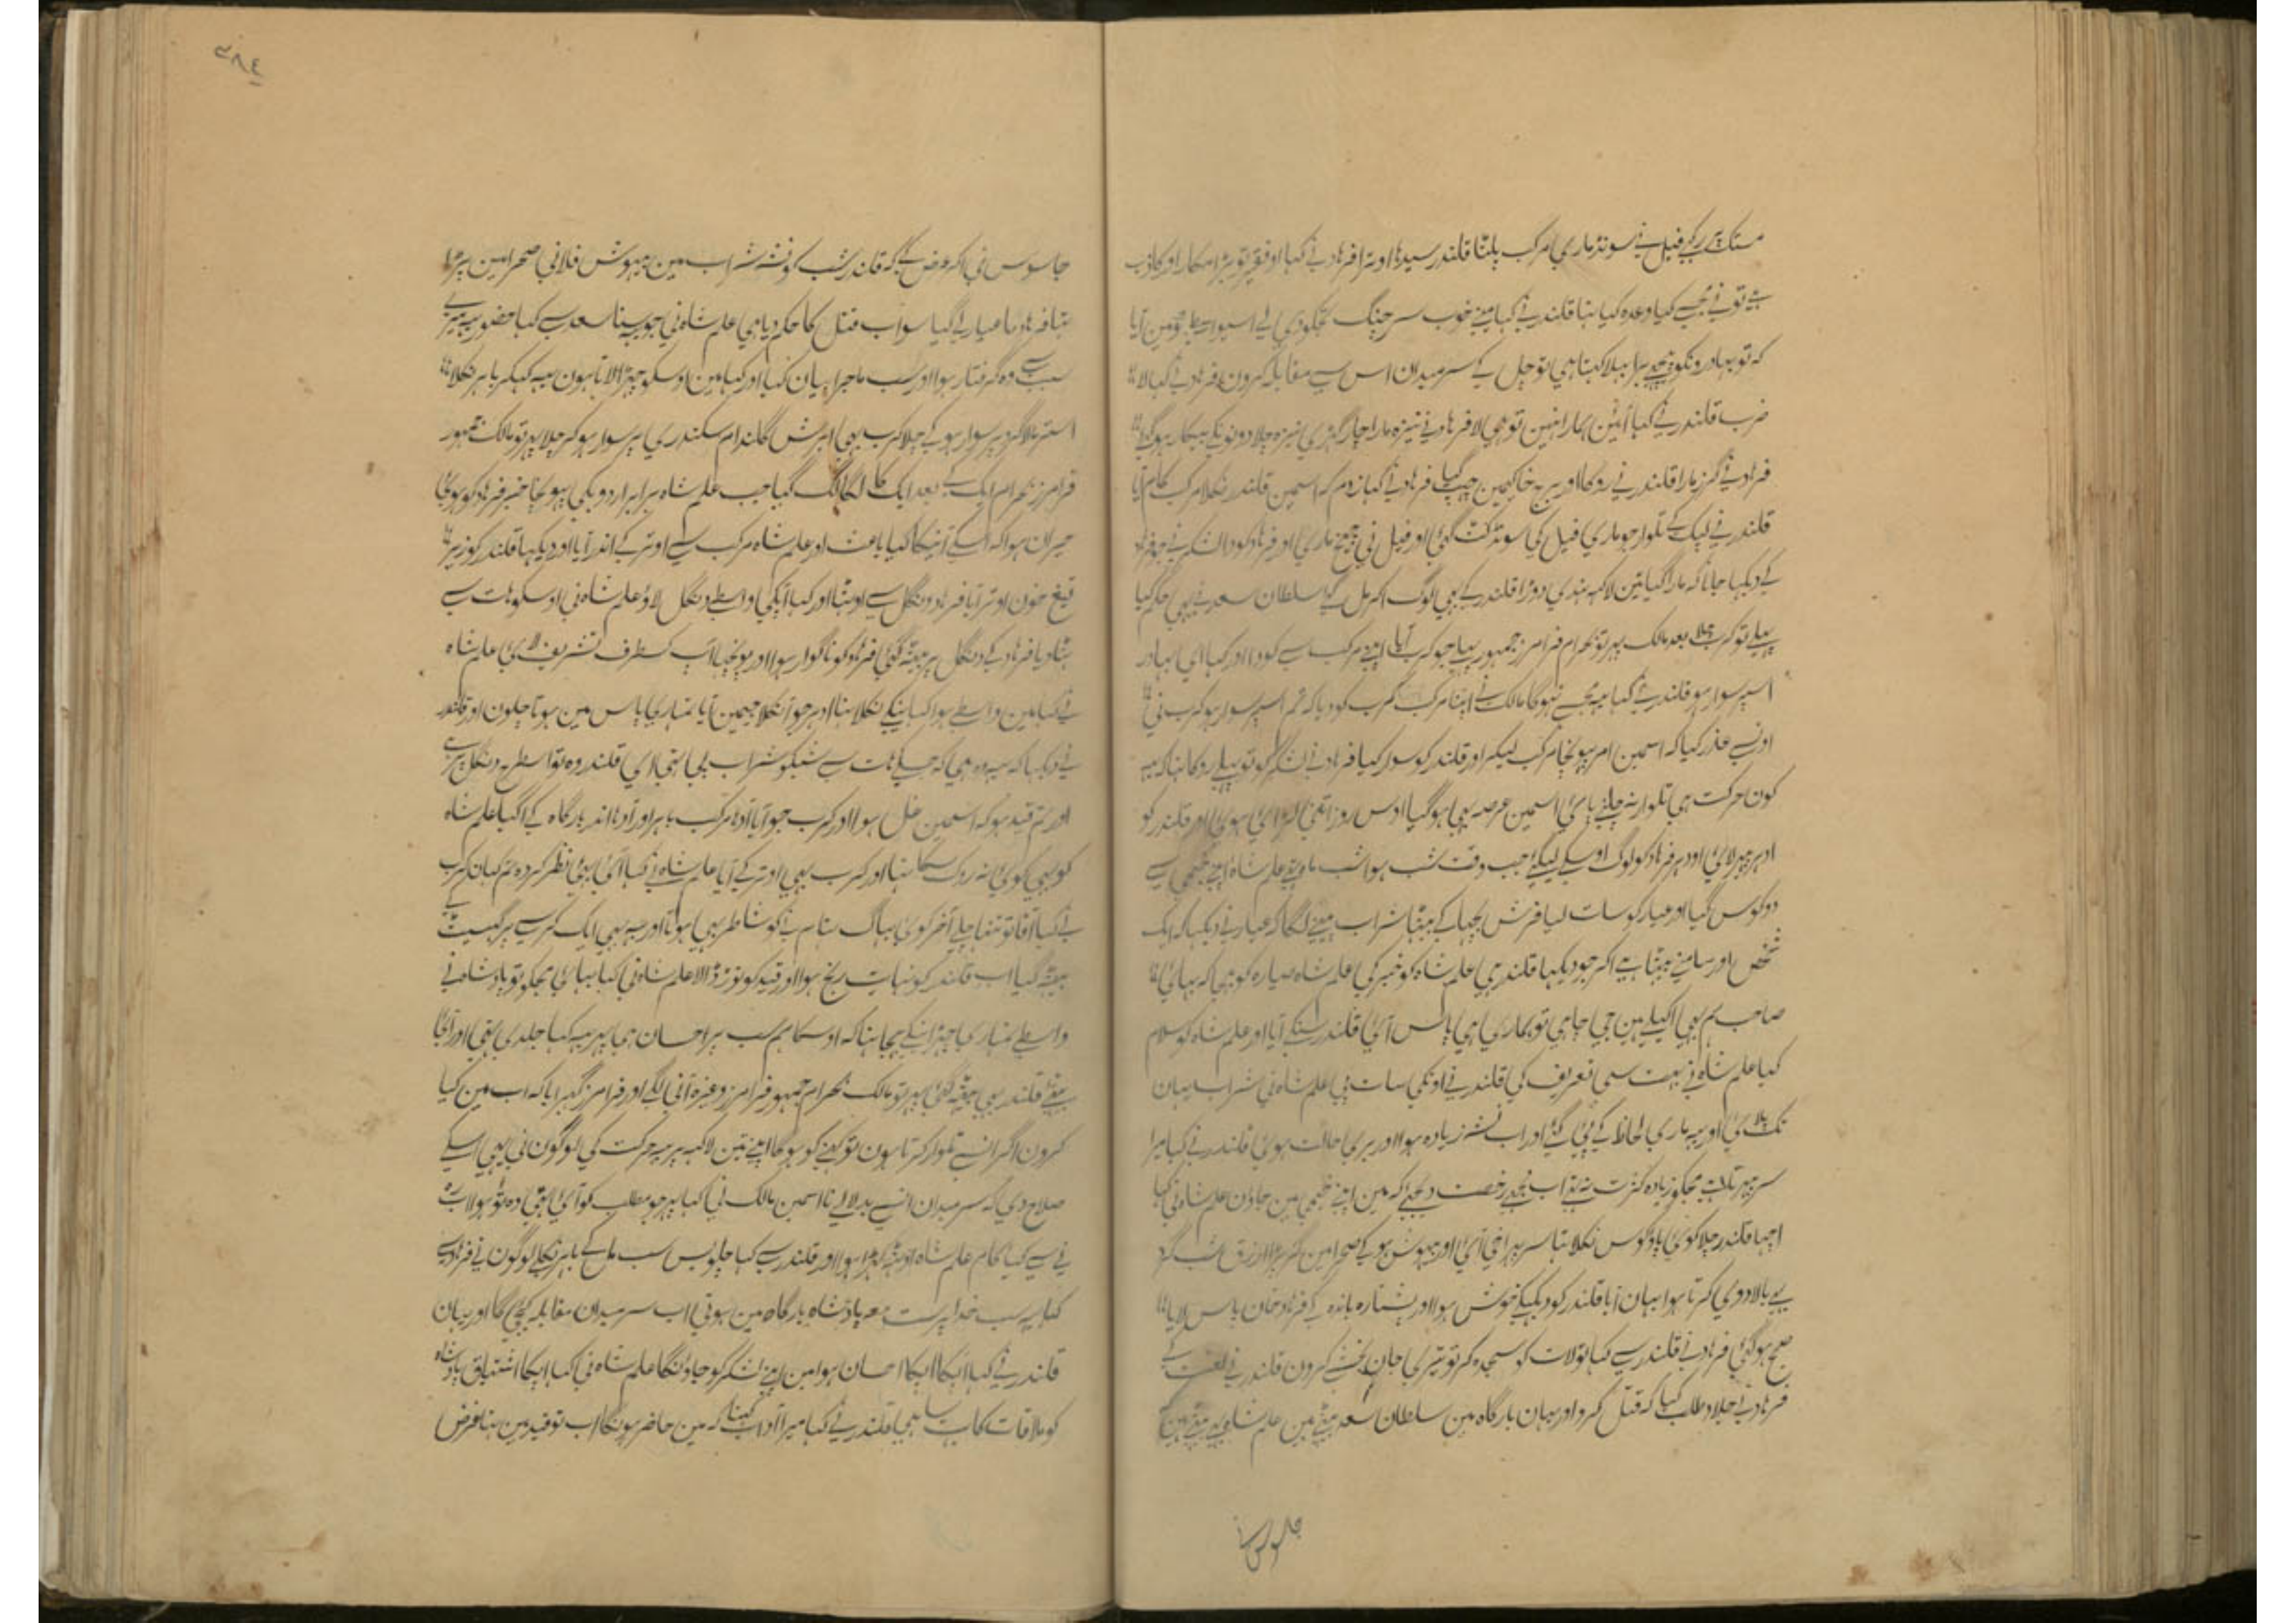 مستک پر رکہے فیل نے سونڈ ماری مرکب پلٹا قلندر سیدہا اوترا فرہاد نے کہا او فقیر تو بڑا مکار اور کاذب
ہے تو نے مجہسے کیا وعدہ کیا تہا قلندر نے کہا مینے خوب سرچنگ تجکو دی لے اسیواسطے مین آیا
کہ تو بہادرونکو برا بہلا کہتا ہی تو چل کے سر میدان اس سے مقابلہ کرون فرہاد نے کہا لا
ضرب قلندر نے کہا آئین ہمارا نہین تو ہی لا فرہاد نے نیزہ مارا چار گہڑی نیزہ چلا دونونکے بیکار ہو گئے
فرہاد نے گرز مارا قلندر نے روکا اور خاک مین چہپ گیا فرہاد نے کہا زدم کہ اسمین قلندر نکلا مرکب کام آیا
قلندر نے لپک کے تلوار جو ماری فیل کی سونڈ کٹ گئی اور فیل نی چیخ ماری اور فرہاد کودا لشکر نے جو فرہاد
کے دیکہا جانا کہ مارا گیا تین لاکہہ ہندی دوڑا قلندر کے بہی لوگ اکر مل گئے سلطان سعد نے بہی حکم کیا
پہلے تو کرب چلا بعد مالک پہر تو بہرام فرامرز جمہور پہلے جو کرب آیا اپنے مرکب سے کودا اور کہا ای بہادر
اسپر سوار ہو قلندر نے کہا یہ مجہسے نہوگا مالک نے اپنا مرکب کرب کو دیا کہ تم اسپر سوار ہو کرب نی
اونسے عذر کیا کہ اسمین امر پہونچا مرکب لیکر اور قلندر کو سوار کیا فرہاد نے لشکر کو تو پہلے روکا تہا کہ یہ
کون حرکت ہی تلوار نہ چلنے پائی اسمین عرصہ بہی ہو گیا اوس روز اتنی لڑائی ہوئی اور قلندر کو
ادہر پہر لائی اودہر فرہاد کو لوگ اوسکے لیگئے جب وقت شب ہوا شب ماہ تہی علمشاہ اپنے خیمی سے
دو کوس گیا اور عیار کو سات لیا فرش بچہا کے بیٹہا شراب پینے لگا کہ عیار نے دیکہا کہ ایک
شخص اور سامنے بیٹہا ہے اکر جو دیکہا قلندر ہی علمشاہ کو خبر کی علمشاہ سیارہ کو بہیجا کہ بہائی
صاحب ہم بہی اکیلے ہین جی چاہی تو ہماری پاس آئی قلندر سنکے آیا اور علمشاہ کو سلام
کیا علمشاہ نے بہت سی تعریف کی قلندر نے اونکی سات پی علمشاہ نی شراب یہان
تک پلائی اور یہ ماری لحاظ کے پی گئے اور اب نشہ زیادہ ہوا اور بری حالت ہوئی قلندر نے کہا میرا
سر پہرتا ہے مجکو زیادہ کثرت نہ تہی اب مجہے رخصت دیجئے کہ مین اپنے خیمی مین جاؤن علمشاہ نی کہا
اچہا قلندر چلا کوئی پاؤ کوس نکلا تہا سر پہرا قی آئی اور بیہوش ہو کے صحرا مین گر پڑا ارزق شب گرد
بے بالادوی کرتا ہوا یہان آیا قلندر کو دیکہکے خوش ہوا اور پشتارہ باندہ کے فرہاد خان پاس لایا
صبح ہو گئی فرہاد نے قلندر سے کہا تو لات کو سجدہ کر تو تیری جان بخشے کرون قلندر نے لعنت کی
فرہاد نے جلاد طلب کیا کہ قتل کرو اور یہان بارگاہ مین سلطان سعد بیٹہے ہین علمشاہ بہی بیٹہے ہین
جاسوس نے
٣٨٤
جاسوس نی اکر عرض کے کہ قلندر شب کو نشہ شراب مین بیہوش فلانی صحرا مین پڑا
تہا فرہاد کا عیار لے گیا سو اب قتل کا حکم دیا ہی علمشاہ نی جو یہ سنا سعد سے کہا حضور یہ میرے
سبب سے وہ گرفتار ہوا اور سب ماجرا بیان کیا اور کہا مین اوسکو چہڑا لاتا ہون یہہ کہکر باہر نکلا
استر مالا گرد پر سوار ہو کے چلا کرب بہی ابرش گلندام سکندری پر سوار ہو کر چلا پہر تو مالک جمہور
فرامرز بہرام ایک کے بعد ایک کا لگا لگ گیا جب علمشاہ برابر اردو کی پہونچا خبر فرہاد کو ہوئی
حیران ہوا کہ اسکے آنیکا کیا باعث اور علمشاہ مرکب سے اوتر کے اندر آیا اور دیکہا قلندر کو زیر
تیغ خون اوتر آیا فرہاد دنگل سے اوٹہا اور کہا آپکی واسطے دنگل لاؤ علمشاہ نی اوسکو ہات سے
ہٹا دیا فرہاد کے دنگل پر بیٹہہ گئی فرہاد کو ناگوار ہوا اور پونچہا آپ کسطرف تشریف لائی علمشاہ
نے کہا مین واسطے ہوا کہانیکے نکلا تہا ادہر جو آنکلا جیمین آیا تمہاری پاس مین ہوتا چلون اور قلندر
نے دیکہا کہ یہہ وہ ہی کہ جسکے ہات سے شبکو شراب پی تہی ای قلندر وہ تو اسطرح دنگل پر ہے
اور تم قید ہو کہ اسمین غل ہوا اور کرب جو آیا آدہا مرکب باہر اور آدہا اندر بارگاہ کے آ گیا علمشاہ
کو بہی کوئی نہ روک سکا تہا اور کرب بہی اوتر کے آیا علمشاہ نے کہا آئی بہئی نظر کردہ تم کہان کرب
نے کہا آقا تو تنہا چلے آخر کوئی بہاگ تہام نے کو شاطر بہی ہوتا اور یہہ بہی ایک کرسے پر گہسیٹ کے
بیٹہہ گیا اب قلندر کو نہایت رنج ہوا اور قید کو توڑ ڈالا علمشاہ نی کہا بہائی مجکو تو بادشاہ نے
واسطے تمہاری چہڑانیکے بہیجا تہا کہ اوسکا ہم سب پر احسان ہی پہر یہہ کیا جلدی تہی اور آئی
بیٹہے قلندر بہی بیٹہہ گئی پہر تو مالک بہرام جمہور فرامرز وغیرہ آنی لگے اور فرامرز گہبرایا کہ اب مین کیا
کرون اگر انسے تلوار کرتا ہون تو کہنے کو ہوگا اپنے تین لاکہہ پر یہ حرکت کی لوگون نی بہی اسکے
صلاح دی کہ سر میدان انسے بدلا لینا اسمین مالک نی کہا پہر جو مطلب کو آئی تہی وہ تو ہولا اب
نے سے کیا کام علمشاہ اوٹہہ کہڑا ہوا اور قلندر سے کہا چلو بس سب مل کے باہر نکلے لوگون نے فرہاد سے
کہا یہ سب خدا پرست معہ بادشاہ بارگاہ مین ہوتی اب سر میدان مقابلہ کیجی گا اور یہان
قلندر نے کہا آپکا احسان ہوا مین اپنے لشکر کو جاؤنگا علمشاہ نی کہا آپکا اشتیاق بادشاہ
کو ملاقات کا بہت سا ہی قلندر نے کہا میرا آداب کہنا کہ مین حاضر ہونگا اب تو قید مین تہا غرض